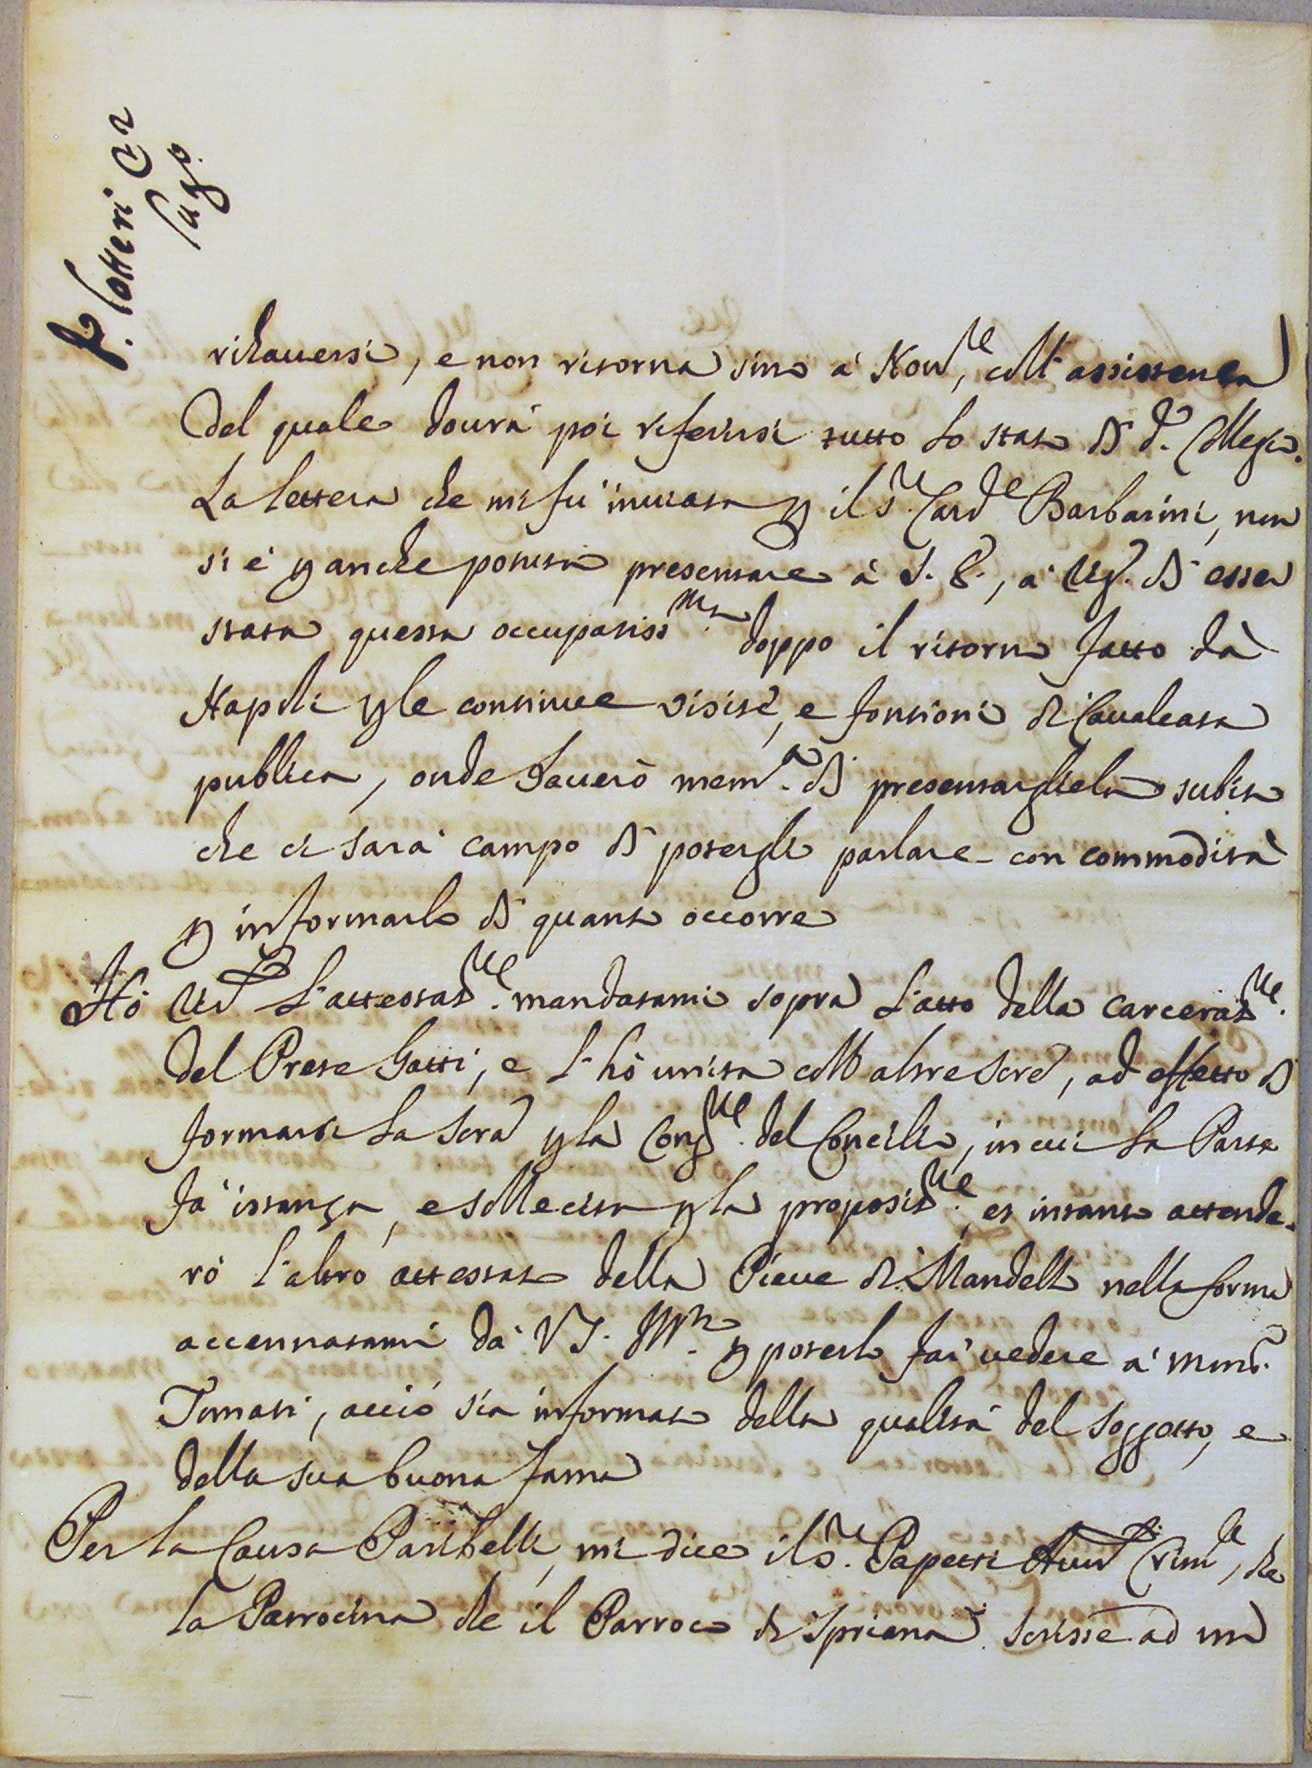 F. Lotteri
Lug.o
rihauersi, e non ritorna sino à Nou.re, coll'assistenza
del quale dourà poi riferirsi tutto lo stato di d.o Collegio.
La lettera che mi fù inuiata p il s.r Card.le Barbarini, non
si è p anche potuta presentare à S. E., à cag. di esser
stata questa occupatiss.ma doppo il ritorno fatto dà
Napoli p le continue visite, e fontioni di Caualcata
publica, onde hauerò mem.a di presentargliela subito
che ci sarà campo di potergli parlare con commodità
p informarlo di quanto occorre
Hò L'attestat.ne mandatami sopra L'atto della carcerat.ne
del Prete Gatti, e l'hò unita coll'altre scre, ad effetto di
formarsi la scra p la Cong.ne del Concilio, in cui la Parte
fà istanza, e sollecita p la proposit.ne, et intanto attende-
rò l'altro attestato della Pieue di Mandello nella forma
accennatami dà V.S. Ill.ma p poterlo far uedere à Mons.r
Tomati, acciò sia informato della qualità del soggetto, e
della sua buona fama
Per la Causa Paribelli, mi dice il s.r Papetti Aud.re Crim.le, che
la Patrocina che il Parroco di Spriana scrisse ad un